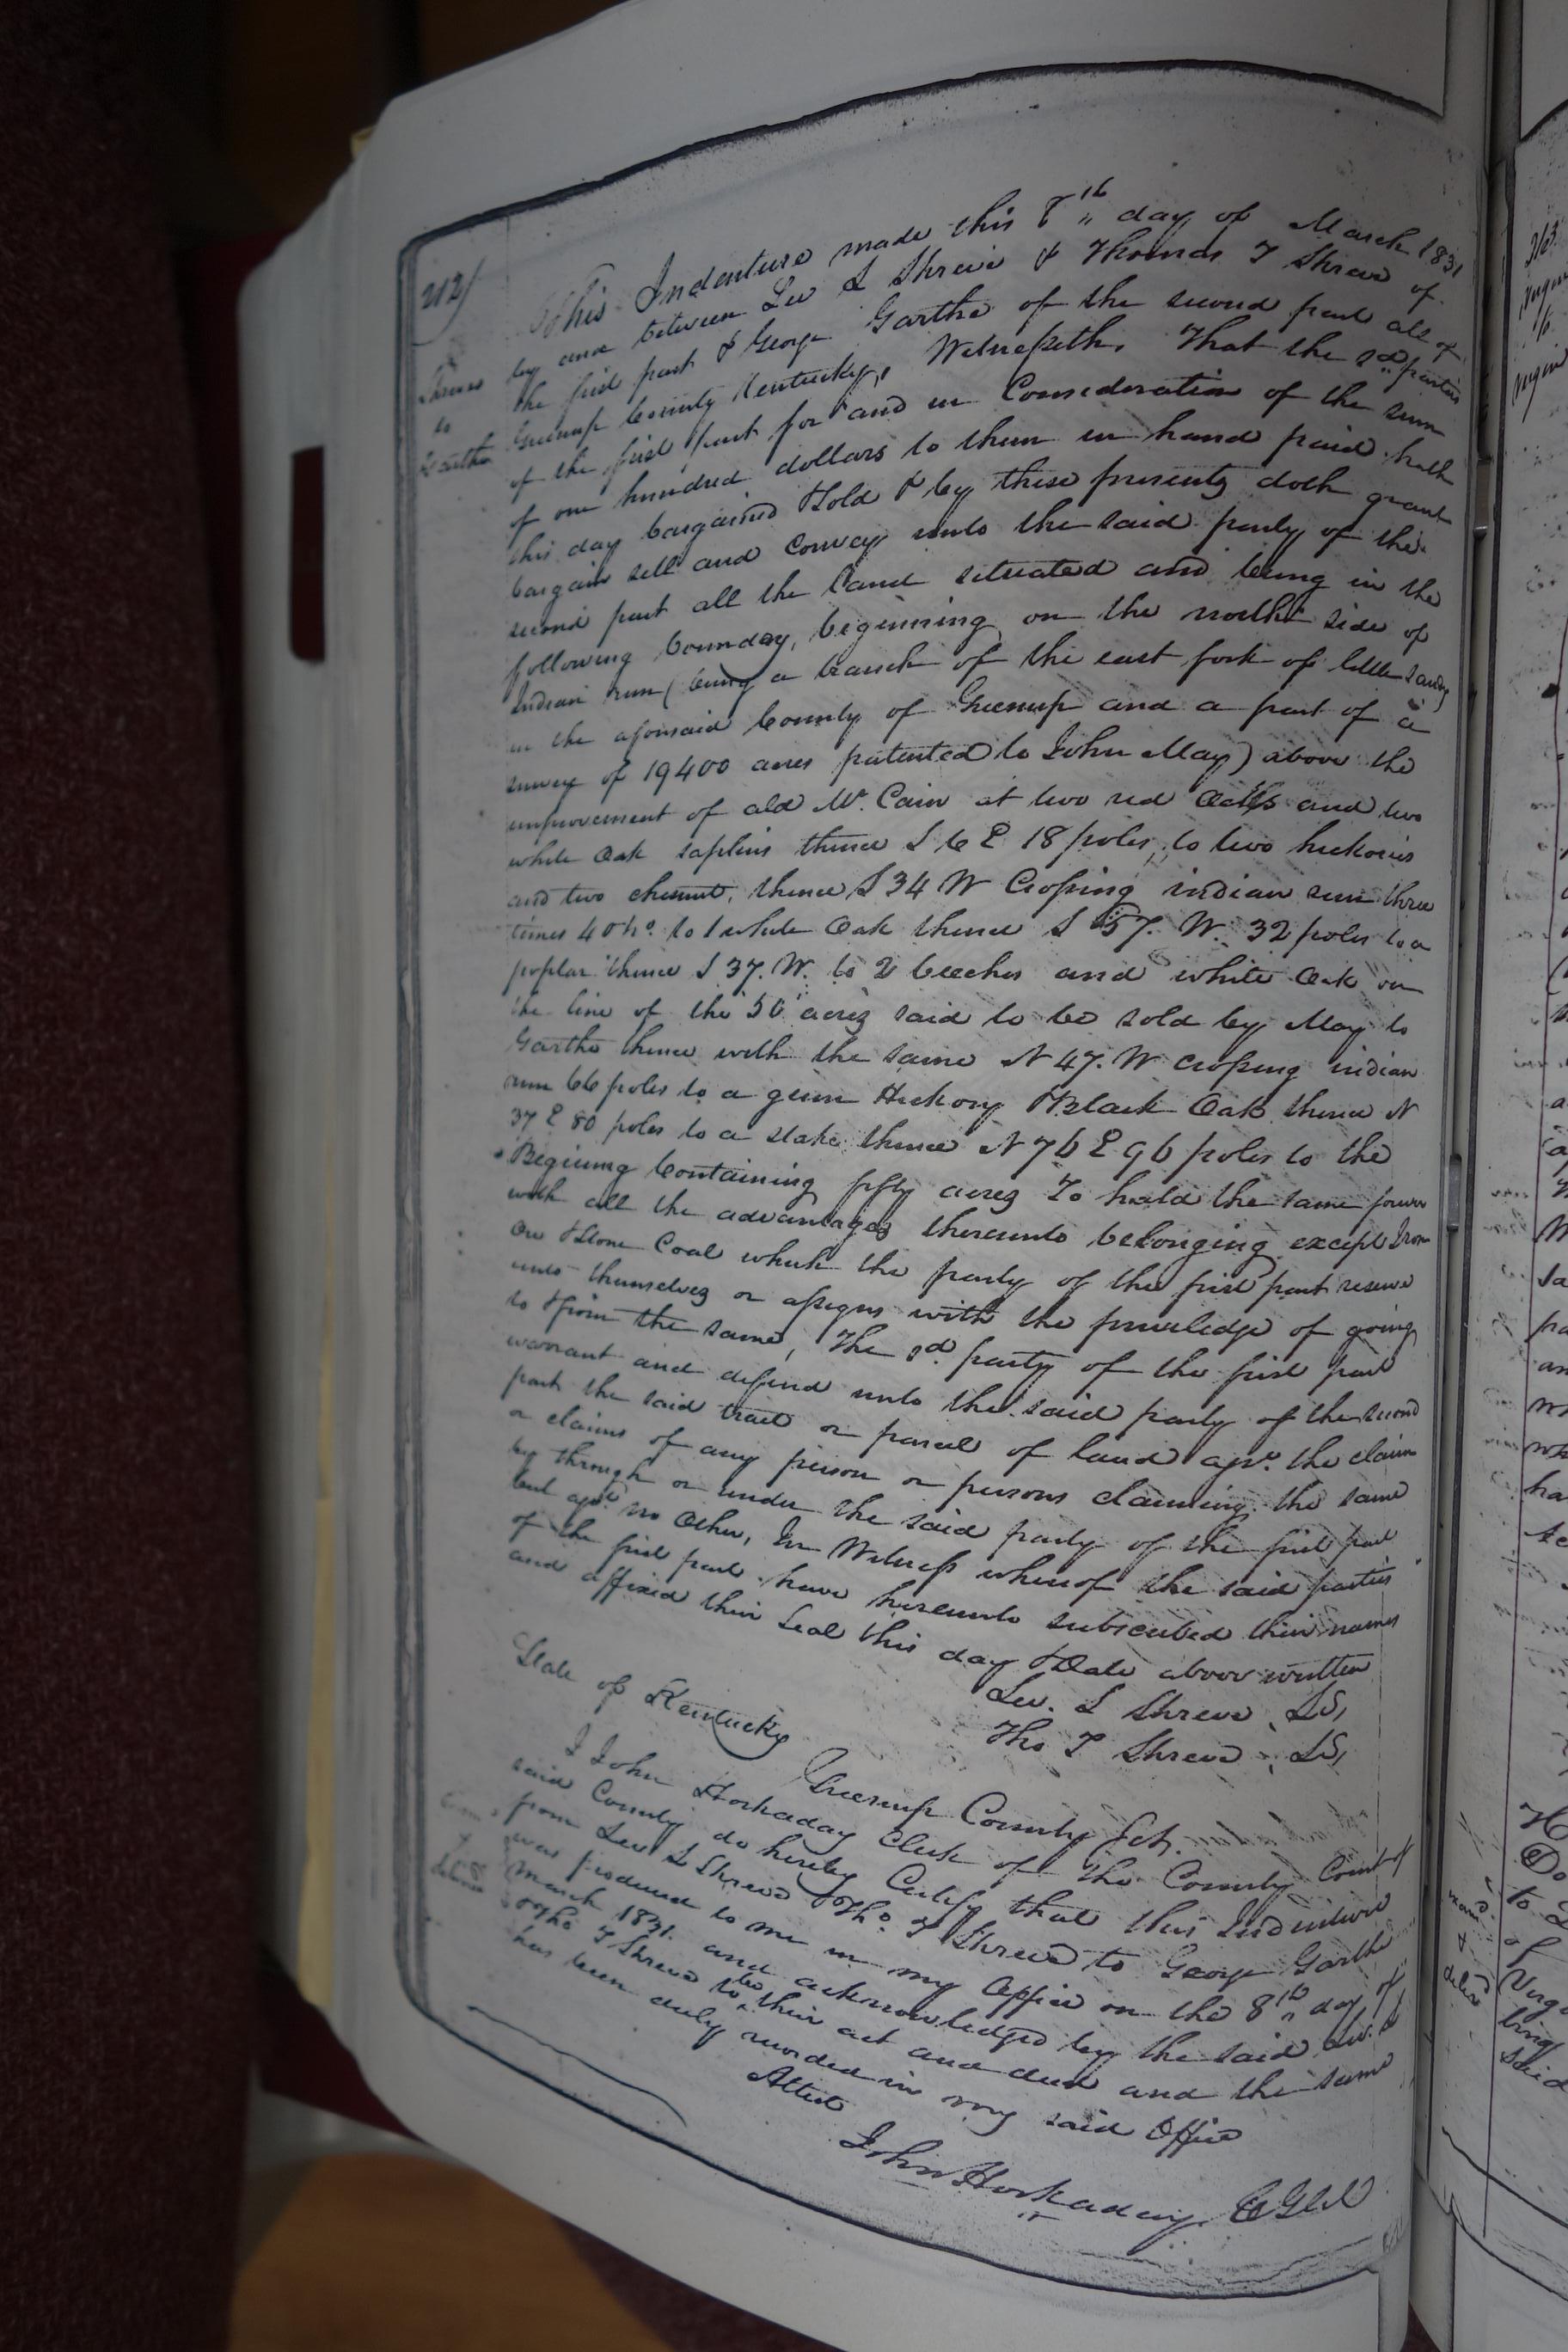 212/
Shreves
to
Garthe
This Indenture made this 8th day of March 1831
by and between Lev L Shreve & Thomas T Shreve of
the first part & George Garthe of the second part all of
Greenup County Kentucky, Witnesseth, That the sd parties
of the first part for and in Consideration of the sum
of one hundred dollars to them in hand paid hath
this day bargained & sold & by these presents doth grant
bargain sell and convey unto the said party of the
second part all the land situated and being in the
following bounday, beginning on the north side of
Indian run (being a branch of the east fork of little Sandy
in the aforesaid County of Greenup and a part of a
survey of 19400 acres patented to John May) above the
improvement of old Mr. Cain at two red Oaks and two
white Oak saplins thence S 6 E 18 poles, to two hickories
and two chesnut, thence S 34 W Crossing indian run three
times 40 to 1 white Oak thence S 57. W. 32 poles to a
poplar thence S 37. W. to 2 beeches and white Oak on
the line of the 50 acres said to be sold by May to
Garthe thence with the same N 47. W crossing indian
run 66 poles to a gum Hickory & Black Oak thence N
37 E 80 poles to a stake thence N 76 E 96 poles to the
Begining Containing fifty acres To hold the same forever
with all the advantages thereunto belonging except Iron
Ore & Stone Coal which the party of the first part reserve
unto themselves or assigns with the priviledge of going
to & from the same, The sd. party of the first part
warrant and defend unto the said party of the second
part the said tract or parcel of land agst. the claim
or claims of any person or persons claiming the same
by through or under the said party of the first part
but agst no Other, In Witness whereof the said parties
of the first part have hereunto subscribed their names
and affixed their Seal this day & Date above written
Lev. L Shreve, LS,
Tho T Shreve, LS,
State of Kentucky
Greenup County Sct.
I John Hockaday Clerk of the County Court of
said County do hereby Certify that this Indenture
from Lev L Shreve & Tho. T Shreve to George Garthe
was produced to me in my Office on the 8th day of
march 1831. and acknowledged by the said Lev. L
& Tho T Shreve to be their act and deed and the same
has been duly recorded in my said Office
Attest
John Hockaday